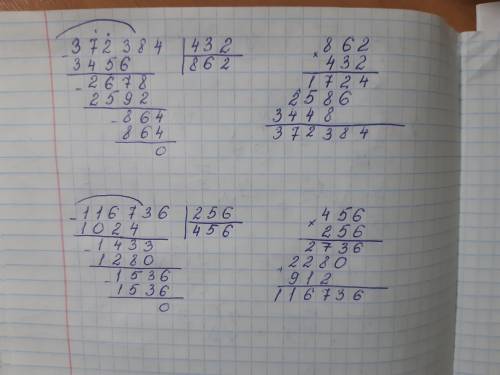 - 372384 | 432
3456 | 862
- 2678
2592
- 864
864
0
× 862
432
1724
2586
3448
372384
- 116736 | 256
1024 | 456
- 1433
1280
- 1536
1536
0
× 456
256
2736
+ 2280
912
116736